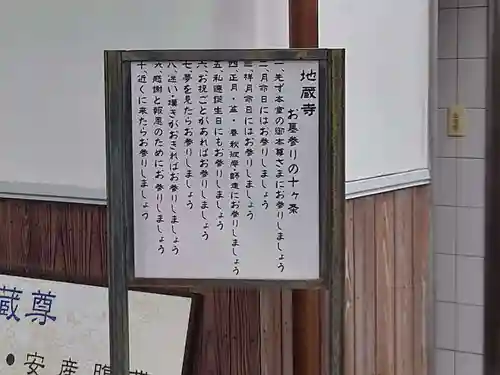 地蔵寺
お墓参りの十ヶ条
一、先ず本堂の御本尊さまにお参りしましょう
二、月命日にはお参りしましょう
三、祥月命日にはお参りしましょう
四、正月・盆・春秋彼岸・師走にお参りしましょう
五、私達誕生日にもお参りしましょう
六、お祝ごとがあればお参りしましょう
七、夢を見たらお参りしましょう
八、迷い・嘆きがおきればお参りしましょう
九、感謝と報恩のためにお参りしましょう
十、近くに来たらお参りしましょう
蔵尊
・安産